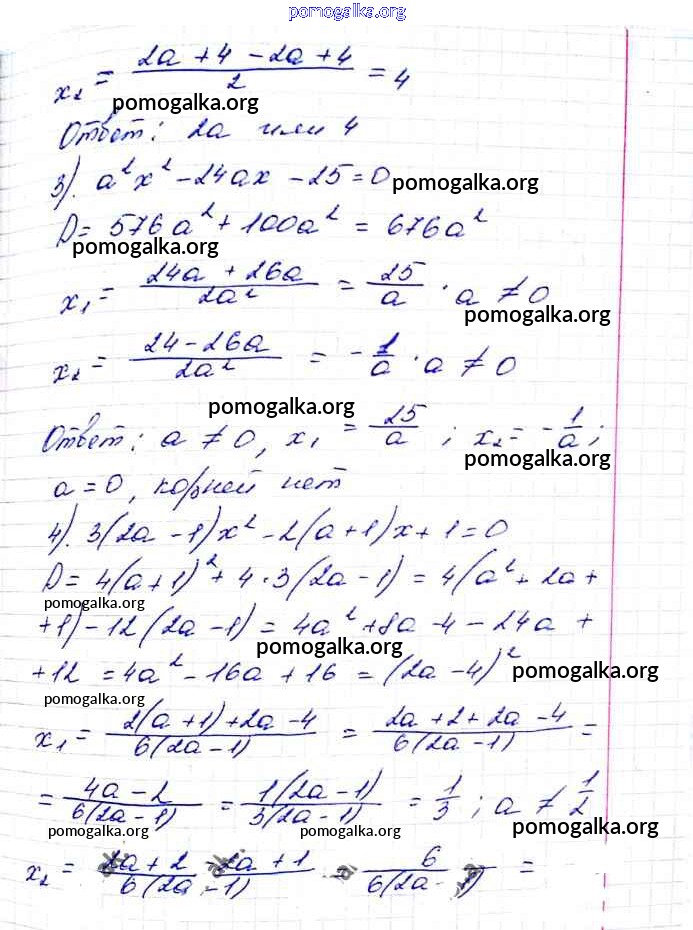 pomogalka.org
x₂ = (2a + 4 - 2a + 4)/2 = 4
pomogalka.org
Ответ: 2a или 4
3). a²x² - 24ax - 25 = 0 pomogalka.org
D = 576a² + 100a² = 676a²
pomogalka.org
x₁ = (24a + 26a)/(2a²) = 25/a · a ≠ 0
pomogalka.org
x₂ = (24 - 26a)/(2a²) = -1/a · a ≠ 0
pomogalka.org
Ответ: a ≠ 0, x₁ = 25/a ; x₂ = -1/a ;
pomogalka.org
a = 0, корней нет
4). 3(2a - 1)x² - 2(a + 1)x + 1 = 0
D = 4(a + 1)² + 4 · 3(2a - 1) = 4(a² + 2a +
pomogalka.org
+ 1) - 12(2a - 1) = 4a² + 8a - 4 - 24a +
pomogalka.org
+ 12 = 4a² - 16a + 16 = (2a - 4)² pomogalka.org
pomogalka.org
x₁ = (2(a + 1) + 2a - 4)/(6(2a - 1)) = (2a + 2 + 2a - 4)/(6(2a - 1)) =
= (4a - 2)/(6(2a - 1)) = 1(2a - 1)/(3(2a - 1)) = 1/3 ; a ≠ 1/2
pomogalka.org pomogalka.org pomogalka.org
x₂ = (2a + 2 - 2a + 1)/(6(2a - 1)) = 6/(6(2a - 1)) =